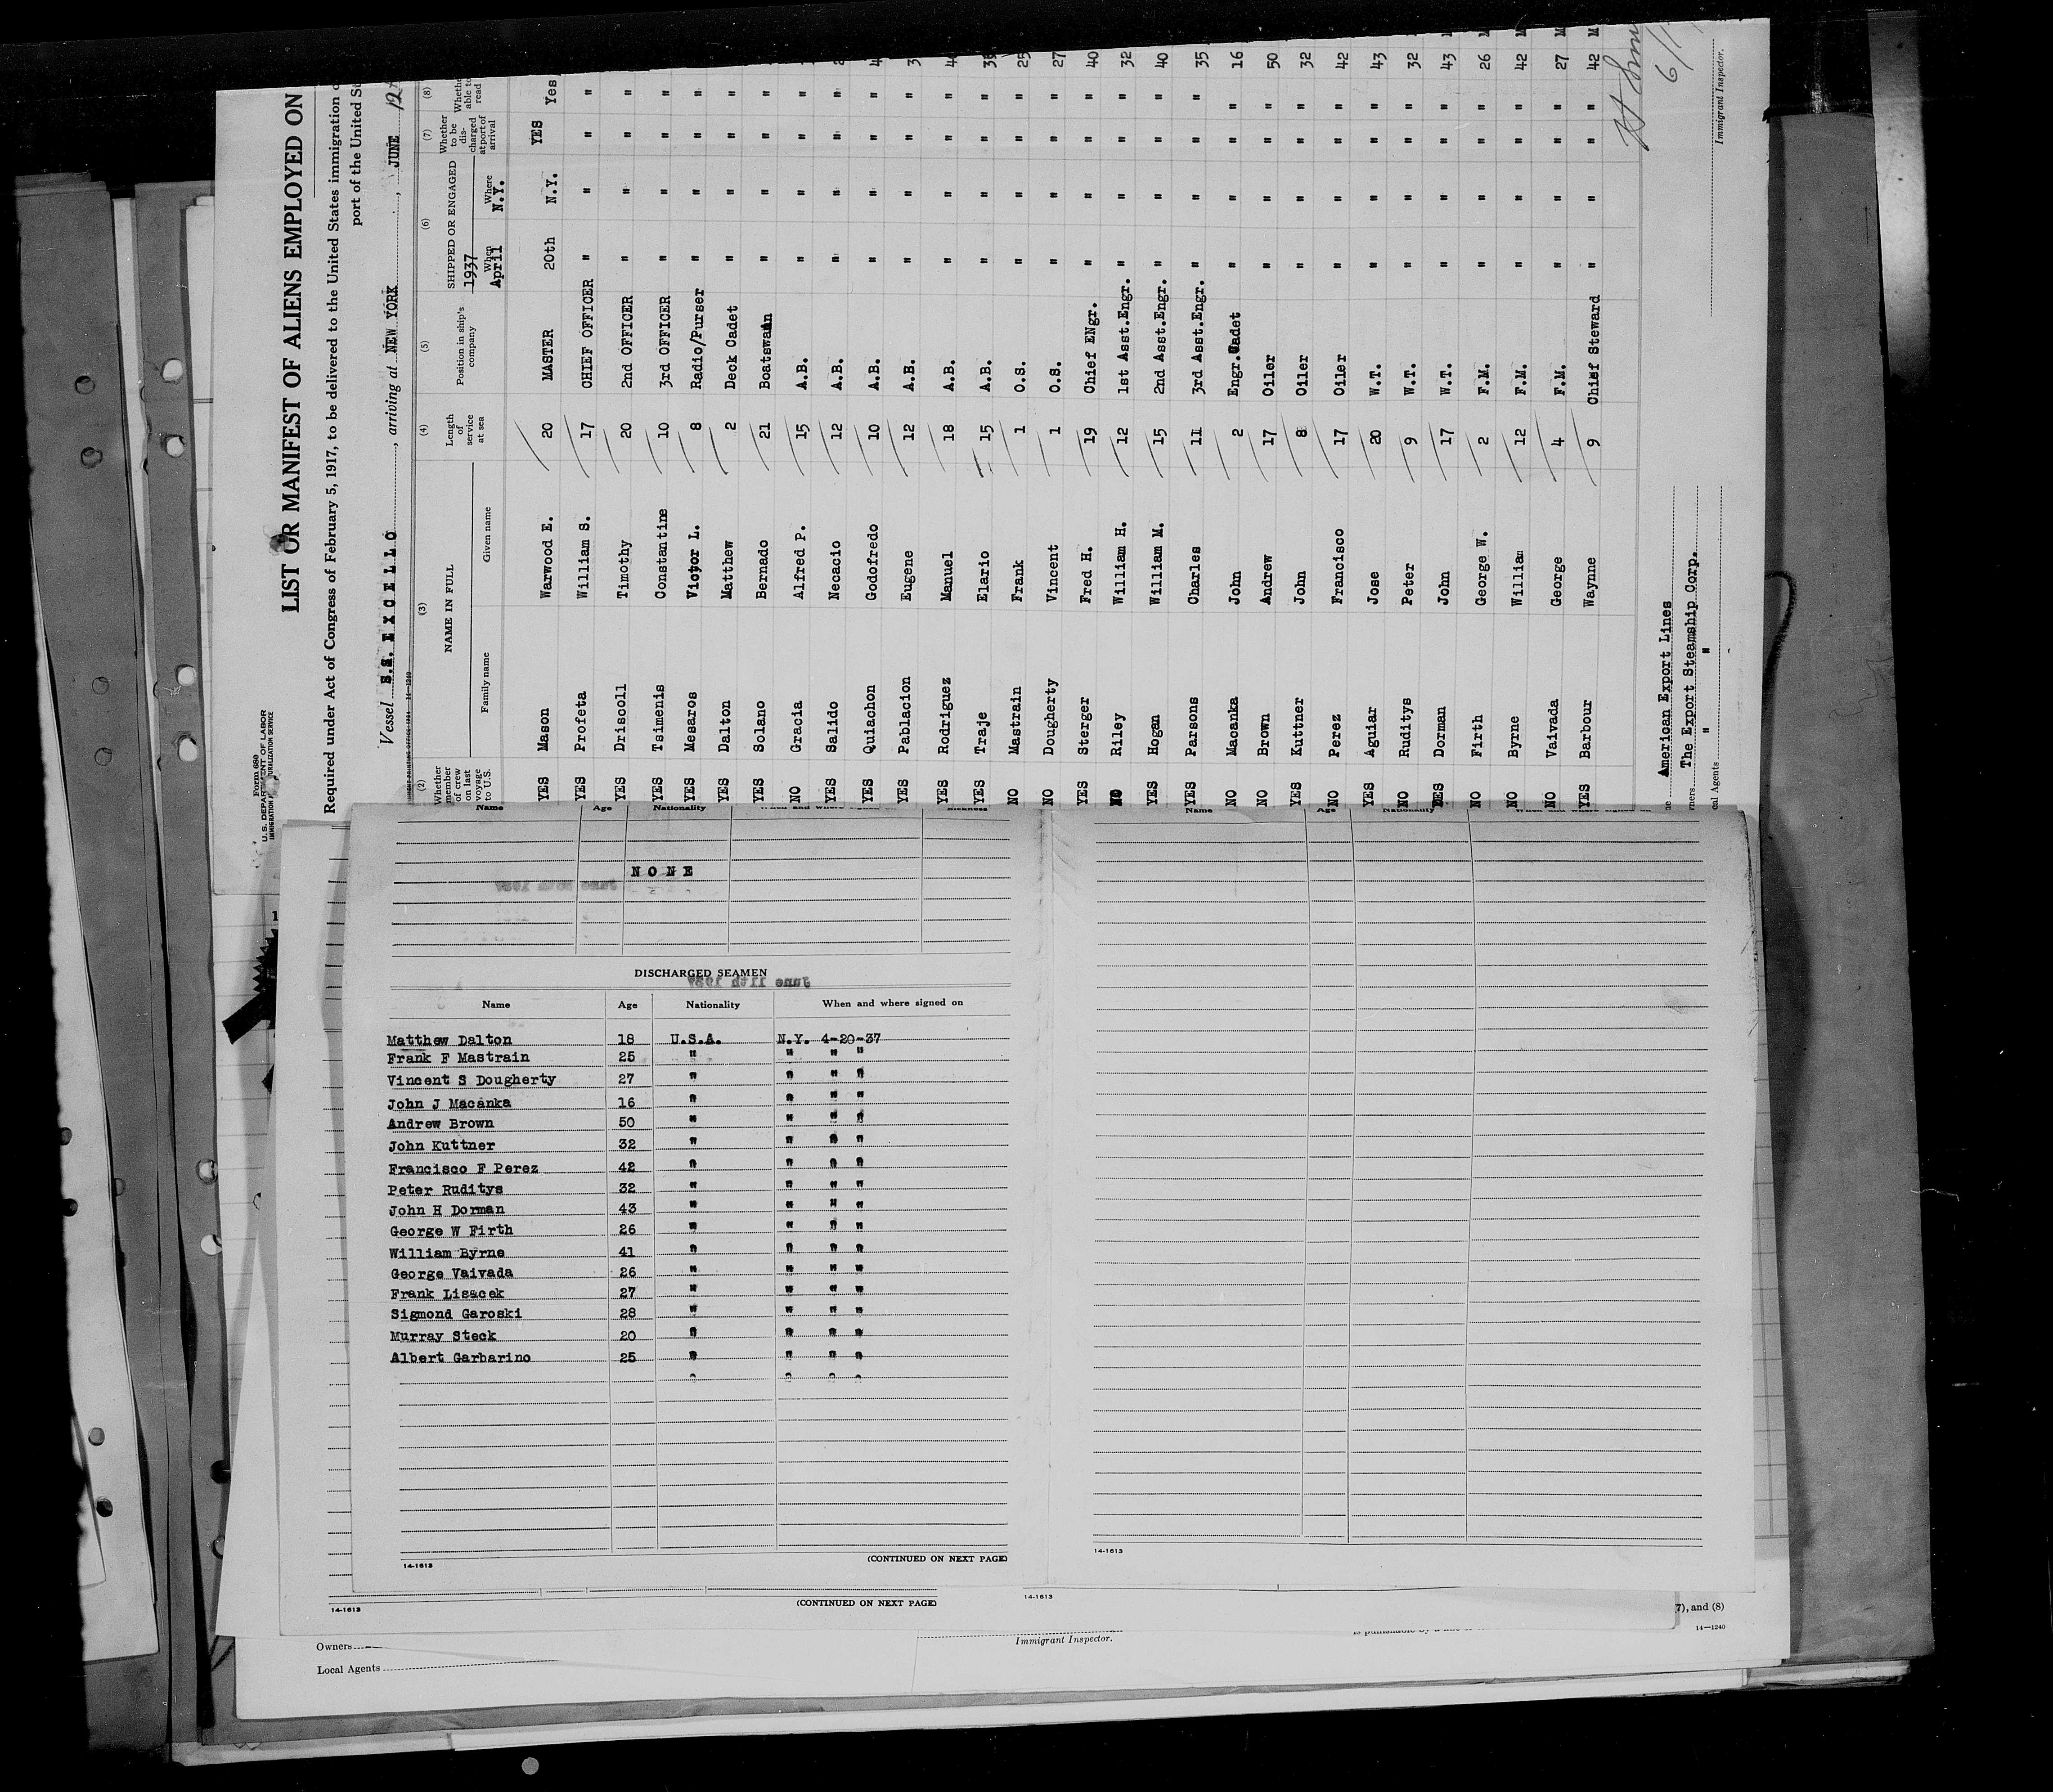 Form 680
U.S. DEPARTMENT OF LABOR
IMMIGRATION
LIST OR MANIFEST OF ALIENS EMPLOYED ON
Required under Act of Congress of February 5, 1917, to be delivered to the United States immigration
port of the United
Vessel S.S. EXCELLO, arriving at NEW YORK, JUNE 12
14-1240
(2) (3) (4) (5) (6) (7) (8)
Whether member of crew on last voyage to U.S. NAME IN FULL Family name Given name Length of service at sea Position in ship's company SHIPPED OR ENGAGED 1937 When April Where N.Y. Whether to be discharged at port of arrival Whether able to read
YES Mason Warwood E. 20 MASTER 20th N.Y. YES Yes
YES Profeta William S. 17 CHIEF OFFICER " " " "
YES Driscoll Timothy 20 2nd OFFICER " " " "
YES Tsimenis Constantine 10 3rd OFFICER " " " "
YES Mesaros Victor L. 8 Radio/Purser " " " "
YES Dalton Matthew 2 Deck Cadet " " " "
YES Solano Bernado 21 Boatswain " " " "
NO Gracia Alfred P. 15 A.B. " " " "
YES Salido Necacio 12 A.B. " " " "
YES Quiachon Godofredo 10 A.B. " " " "
YES Pablacion Eugene 12 A.B. " " " "
YES Rodriguez Manuel 18 A.B. " " " "
YES Traje Elario 15 A.B. " " " "
NO Mastrain Frank 1 O.S. " " " " 25
NO Dougherty Vincent 1 O.S. " " " " 27
YES Sterger Fred H. 19 Chief ENgr. " " " " 40
NO Riley William H. 12 1st Asst.Engr. " " " " 32
YES Hogan William M. 15 2nd Asst.Engr. " " " " 40
YES Parsons Charles 11 3rd Asst.Engr. " " " " 35
NO Macanka John 2 Engr.Cadet " " " " 16
NO Brown Andrew 17 Oiler " " " " 50
YES Kuttner John 8 Oiler " " " " 32
NO Perez Francisco 17 Oiler " " " " 42
YES Aguiar Jose 20 W.T. " " " " 43
NO Ruditys Peter 9 W.T. " " " " 32
YES Dorman John 17 W.T. " " " " 43
NO Firth George W. 2 F.M. " " " " 26
NO Byrne William 12 F.M. " " " " 42
NO Vaivada George 4 F.M. " " " " 27
YES Barbour Waynne 9 Chief Steward " " " " 42
American Export Lines
The Export Steamship Corp.
" "
Immigrant Inspector.
Name Age Nationality
NONE
DISCHARGED SEAMEN
June 11th 1937
Name Age Nationality When and where signed on
Matthew Dalton 18 U.S.A. N.Y. 4-20-37
Frank F Mastrain 25 " " " "
Vincent S Dougherty 27 " " " "
John J Macanka 16 " " " "
Andrew Brown 50 " " " "
John Kuttner 32 " " " "
Francisco F Perez 42 " " " "
Peter Ruditys 32 " " " "
John H Dorman 43 " " " "
George W Firth 26 " " " "
William Byrne 41 " " " "
George Vaivada 26 " " " "
Frank Lisacek 27 " " " "
Sigmond Garoski 28 " " " "
Murray Steck 20 " " " "
Albert Garbarino 25 " " " "
" " " "
14-1613
(CONTINUED ON NEXT PAGE)
14-1613
14-1613
(CONTINUED ON NEXT PAGE)
14-1613
7), and (8)
14-1240
Owners
Immigrant Inspector.
Local Agents